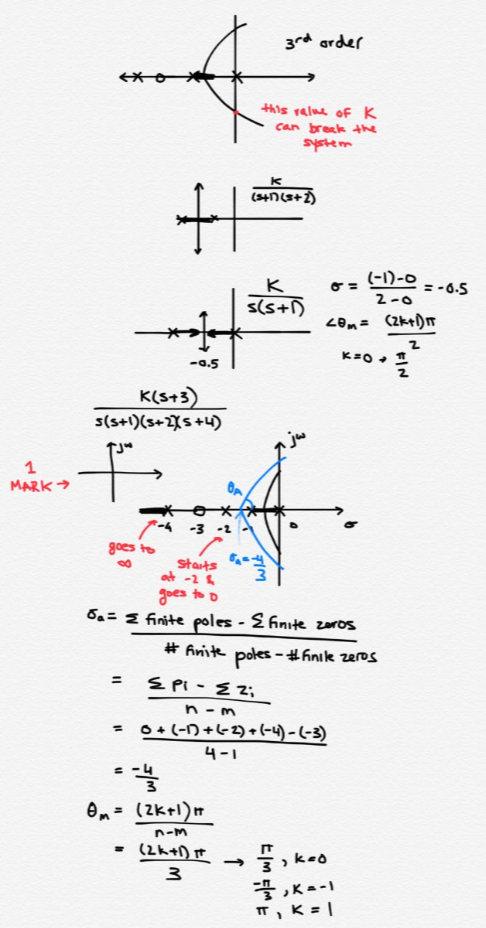 3rd order
this value of K
can break the
system
K
(s+1)(s+2)
K
s(s+1)
σ = (-1)-0 = -0.5
2-0
∠θm = (2k+1)π
2
k=0 → π
2
-0.5
K(s+3)
s(s+1)(s+2)(s+4)
jω
1
MARK →
jω
θA
-4 -3 -2 -1 0 σ
goes to
∞
starts
at -2 &
goes to 0
σa = -4
3
σa = Σ finite poles - Σ finite zeros
# finite poles - # finite zeros
= Σ Pi - Σ Zi
n - m
= 0 + (-1) + (-2) + (-4) - (-3)
4 - 1
= -4
3
θm = (2k+1)π
n-m
= (2k+1)π → π , k=0
3 3
-π , k=-1
3
π , K = 1